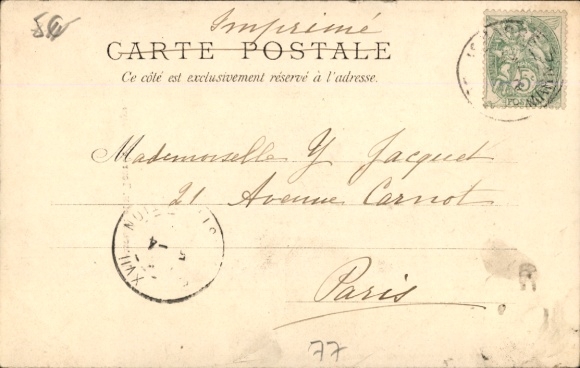 Imprimé
CARTE POSTALE
Ce côté est exclusivement réservé à l'adresse.
5
Mademoiselle Y Jacquet
21 Avenue Carnot
Paris
77